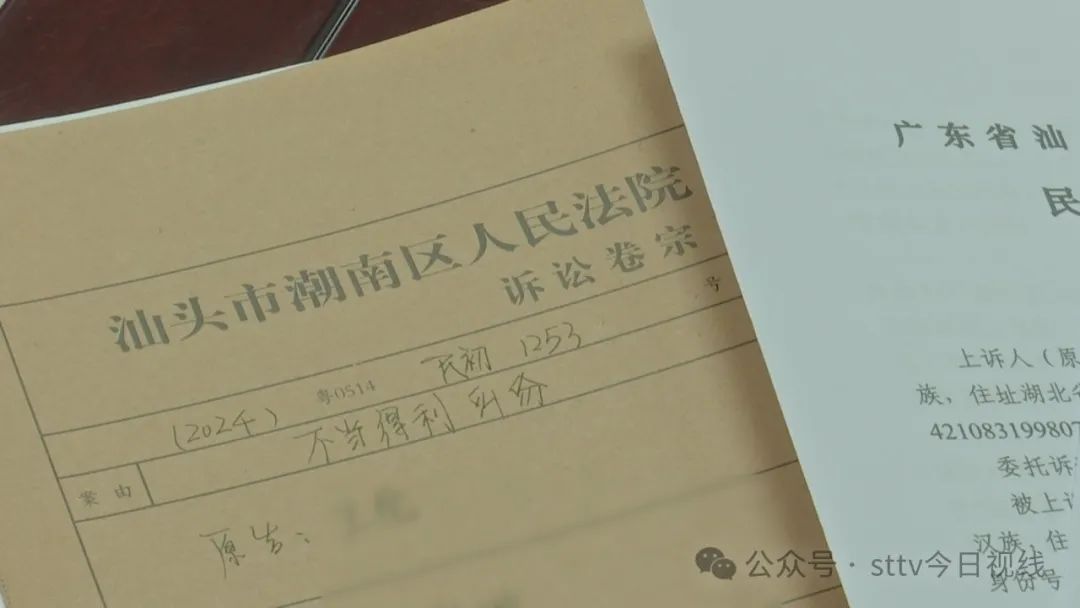 汕头市潮南区人民法院
诉讼卷宗
(2024) 粤0514 民初 1253 号
案由 不当得利纠纷
原告:
广东省汕
民
上诉人(原
族,住址湖北省
42108319980
委托诉
被上
汉族,住
身份号
公众号·sttv今日视线